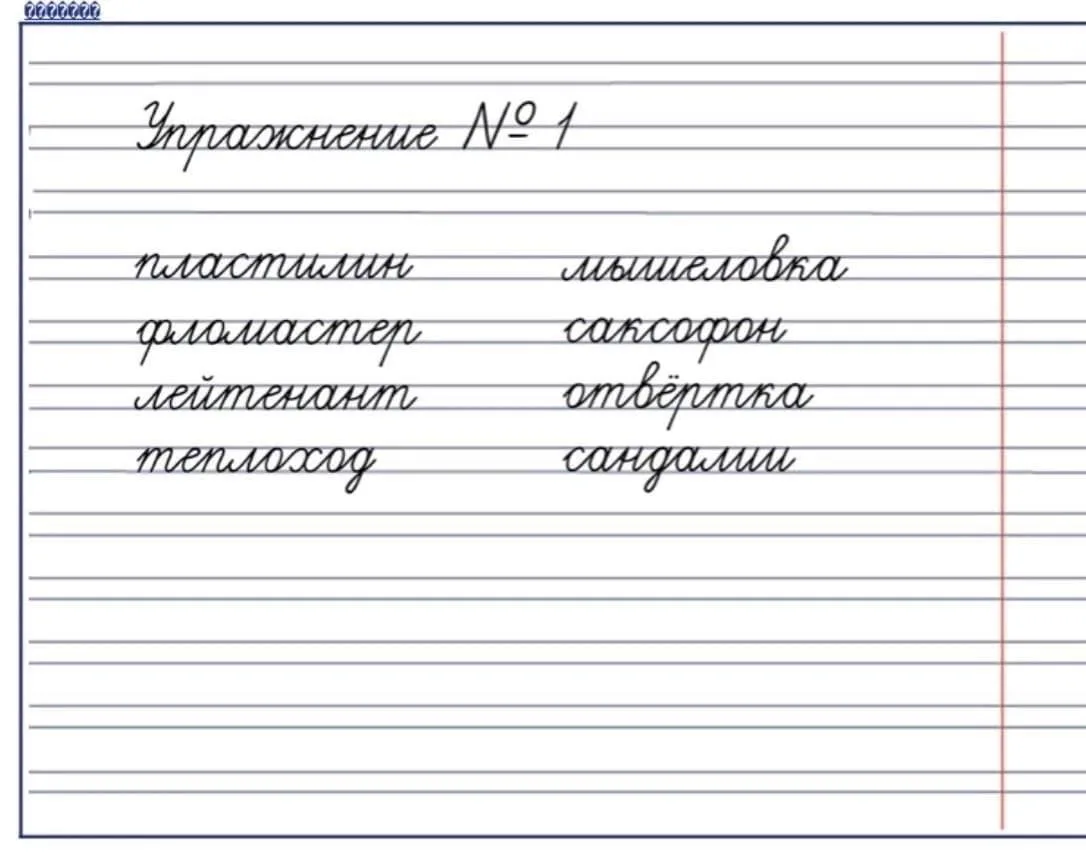 Упражнение № 1
пластилин мышеловка
фломастер саксофон
лейтенант отвёртка
теплоход сандалии